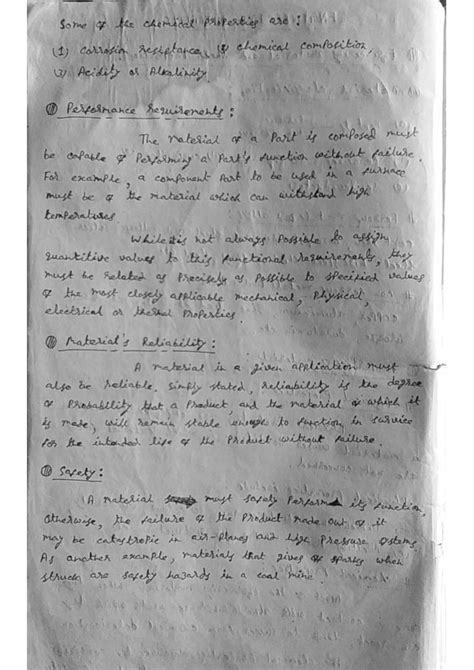 Some of the chemical Properties are :
(1) Corrosion resistance, (2) chemical composition,
(3) Acidity or Alkalinity
Performance requirements :
The material of a Part is composed must
be capable of Performing a Part's function without failure.
For example, a component Part to be used in a furnace
must be of the material which can withstand high
temperatures
While it is not always Possible to assign
quantitive values to this functional requirements, they
must be related as Precisely as Possible to specified values
of the most closely applicable mechanical, Physical,
electrical or thermal Properties.
Material's Reliability :
A material in a given application must
also be reliable. Simply stated, reliability is the degree
of Probability that a Product, and the material of which it
is made, will remain stable enough to function in service
for the intended life of the Product without failure.
Safety :
A material must safely Perform its function,
Otherwise, the failure of the Product made out of it
may be catastropic in air-planes and high Pressure systems.
As another example, materials that gives of sparks when
struck are safety hazards in a coal mine.